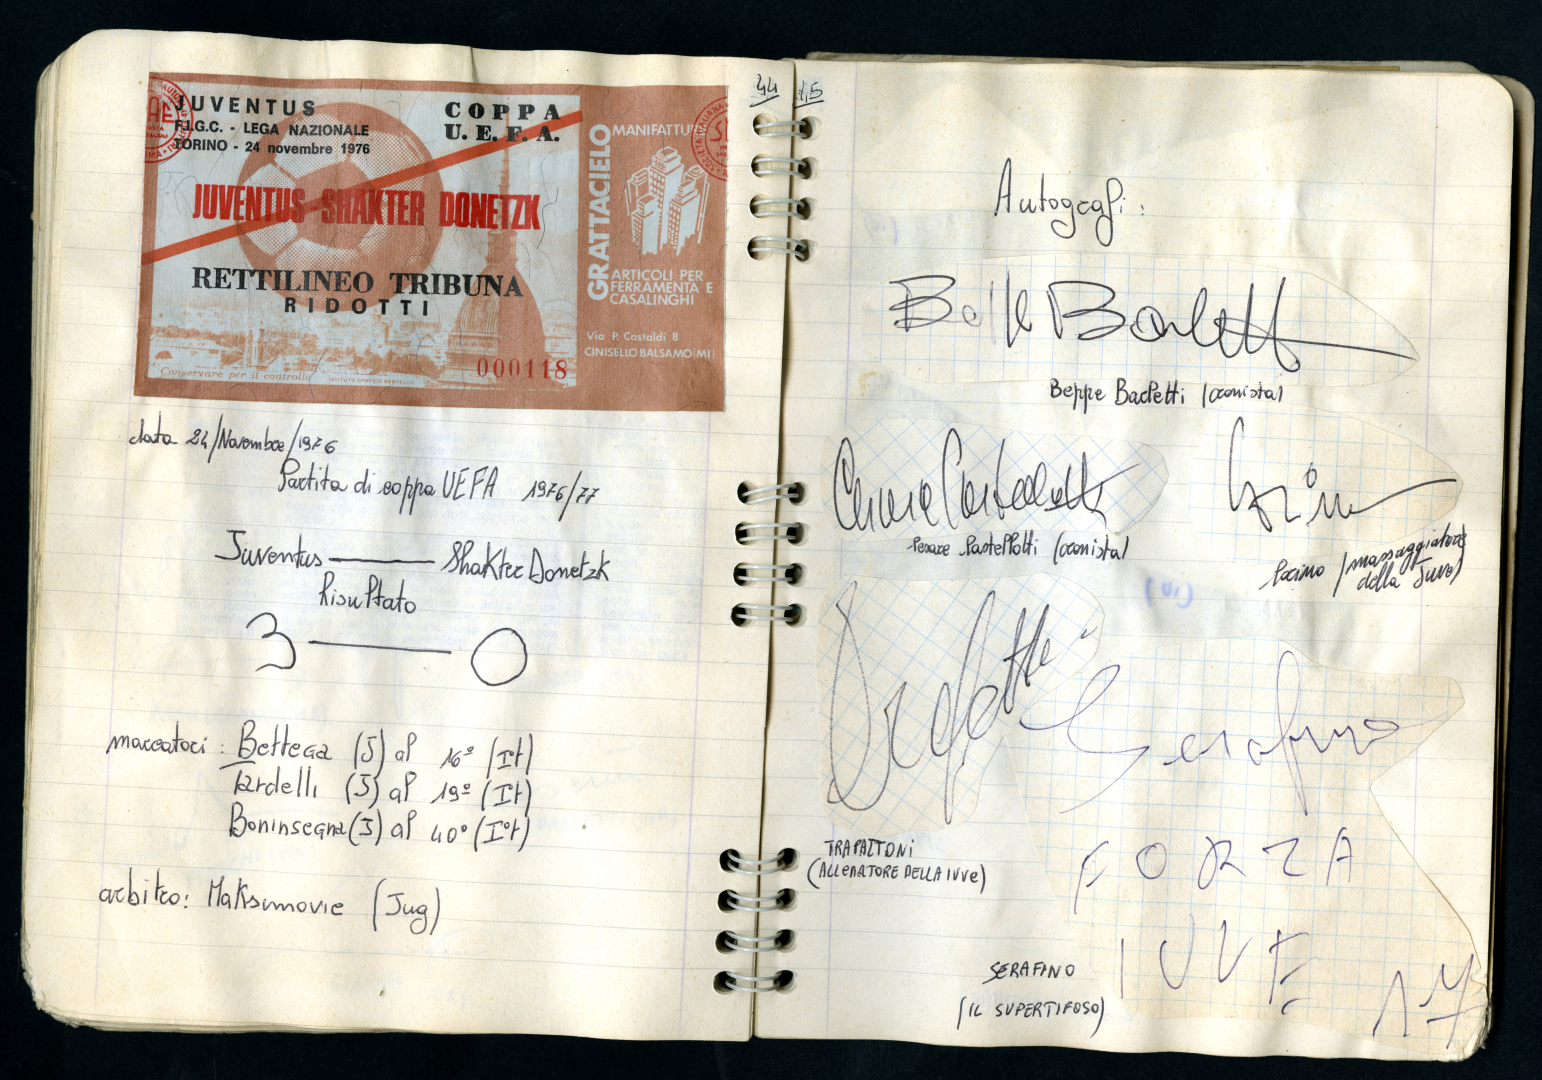 44
JUVENTUS
F.I.G.C. - LEGA NAZIONALE
TORINO - 24 novembre 1976
COPPA
U.E.F.A.
JUVENTUS SHAKTER DONETZK
RETTILINEO TRIBUNA
RIDOTTI
000118
Conservare per il controllo
GRATTACIELO
MANIFATTU
ARTICOLI PER
FERRAMENTA E
CASALINGHI
Via P. Castaldi 8
CINISELLO BALSAMO (MI)
data 24/Novembre/1976
Partita di coppa UEFA 1976/77
Juventus — Shakter Donetzk
Risultato
3 — 0
marcatori: Bettega (J) al 16º (Iºt)
Tardelli (J) al 19º (Iºt)
Boninsegna (J) al 40º (Iºt)
arbitro: Maksimovie (Jug)
45
Autografi:
Beppe Barletti (cronista)
Cesare Castellotti (cronista)
(massaggiatore
della Juve)
TRAPATTONI
(ALLENATORE DELLA IUVE)
Serafino
FORZA
IUVE
SERAFINO
(IL SUPERTIFOSO)